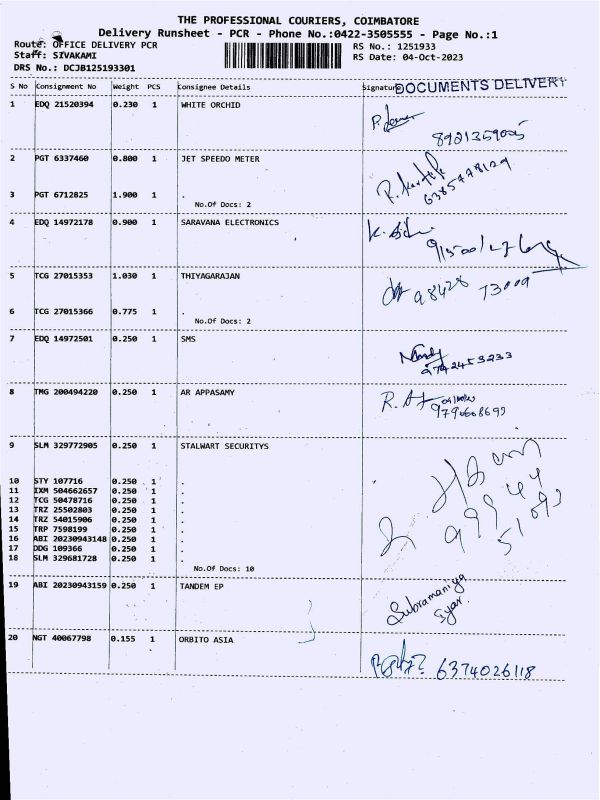 THE PROFESSIONAL COURIERS, COIMBATORE
Delivery Runsheet - PCR - Phone No.:0422-3505555 - Page No.:1
Route: OFFICE DELIVERY PCR
RS No.: 1251933
Staff: SIVAKAMI
RS Date: 04-Oct-2023
DRS No.: DCJB125193301
S No Consignment No Weight PCS Consignee Details Signature DOCUMENTS DELIVERY
1 EDQ 21520394 0.230 1 WHITE ORCHID
2 PGT 6337460 0.800 1 JET SPEEDO METER
3 PGT 6712825 1.900 1 .
No.Of Docs: 2
4 EDQ 14972178 0.900 1 SARAVANA ELECTRONICS
5 TCG 27015353 1.030 1 THIYAGARAJAN
6 TCG 27015366 0.775 1 .
No.Of Docs: 2
7 EDQ 14972501 0.250 1 SMS
8 TMG 200494220 0.250 1 AR APPASAMY
9790608699
9 SLM 329772905 0.250 1 STALWART SECURITYS
10 STY 107716 0.250 1 .
11 IXM 504662657 0.250 1 .
12 TCG 50478716 0.250 1 .
13 TRZ 25502803 0.250 1 .
14 TRZ 54015906 0.250 1 .
15 TRP 7598199 0.250 1 .
16 ABI 20230943148 0.250 1 .
17 DDG 109366 0.250 1 .
18 SLM 329681728 0.250 1 .
No.Of Docs: 10
19 ABI 20230943159 0.250 1 TANDEM EP
Subramaniya
Iyar
20 NGT 40067798 0.155 1 ORBITO ASIA
6374026118